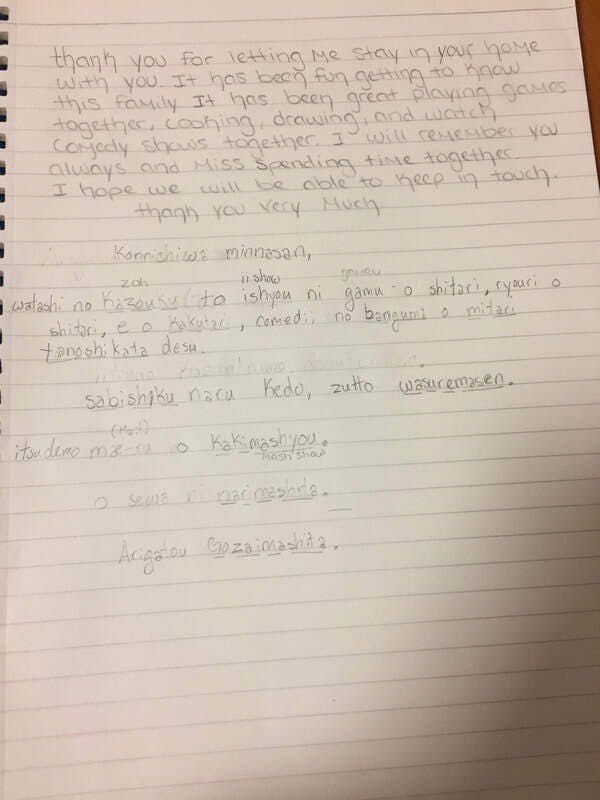 thank you for letting me stay in your home
with you. It has been fun getting to know
this family It has been great playing games
together, cooking, drawing, and watch
comedy shows together. I will remember you
always and miss spending time together.
I hope we will be able to keep in touch.
thank you very much
Konnichiwa minnasan,
zoh iishow
watashi no Kazouku to ishyou ni gamu o shitari, ryouri o
shitari, e o kakutari, comedii no bangumi o mitari
tanoshikata desu.
sabishiku naru kedo, zutto wasuremasen.
itsudemo o kakimashyou.
mash show
o sewa ni narimashita.
Arigatou Gozaimashita.